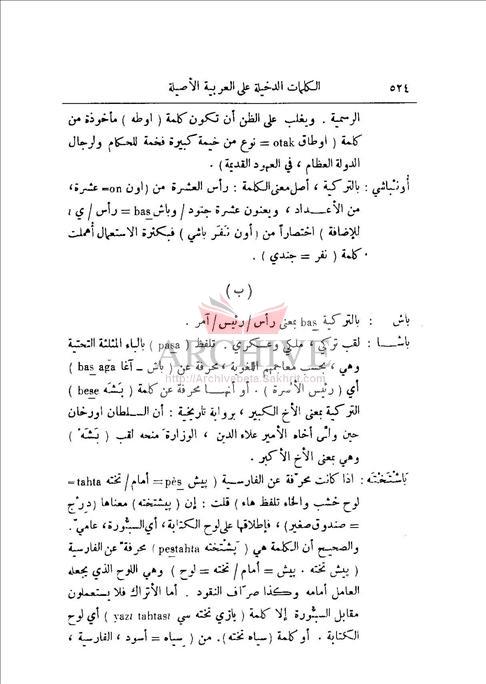 ٥٢٤ الكلمات الدخيلة على العربية الأصيلة
الرسمية . ويغلب على الظن أن تكون كلمة ( اوطه ) مأخوذة من
كلمة ( اوطاق otak = نوع من خيمة كبيرة فخمة للحكام ولرجال
الدولة العظام ، في العهود القديمة ) .
أُونْباشي : بالتركية ، أصل معنى الكلمة : رأس العشرة من (اون on= عشرة،
من الأعداد ، ويعنون عشرة جنود / وباش baş = رأس / ي ı
للإضافة ) اختصاراً من (أون نفَر باشي ) فبكثرة الاستعمال أُهملت
كلمة ( نفر = جندي ) .
( ب )
باش : بالتركية baş بمعنى رأس / رئيس / آمر .
باشا : لقب تركي / ملكي وعسكري . تلفظ ( paşa ) بالباء المثلثة التحتية
وهي ، بحسب معاجمهم اللغوية ، محرفة عن ( باش ــ آغا baş ağa )
أي ( رئيس الأسرة ) . أو أنها محرفة عن كلمة ( بَشَه beşe )
التركية بمعنى الأخ الكبير ، برواية تاريخية : أن السلطان اورخان
حين ولّى أخاه الأمير علاء الدين ، الوزارة منحه لقب ( بَشَهْ )
وهي بمعنى الأخ الأكبر .
بَاشْتَخْتَه : اذا كانت محرّفة عن الفارسية ( بيش pèş = أمام / تخته tahta=
لوح خشب والخاء تلفظ هاء ) قلت : إن ( بيشتخته ) معناها (دِرْج
= صندوق صغير) ، فإطلاقها على لوح الكتابة، أي السبّورة، عاميّ.
والصحيح أن الكلمة هي ( بَشْتخته peştahta ) محرفة عن الفارسية
( بيش تخته . بيش = أمام / تخته = لوح ) وهي اللوح الذي يجعله
العامل أمامه وكذا صرّاف النقود . أما الأتراك فلا يستعملون
مقابل السبّورة إلا كلمة ( يازي تخته سي yazı tahtası ) أي لوح
الكتابة . أو كلمة (سياه تخته). من ( سياه = أسود ، الفارسية ،
ARCHIVE
http://Archivebeta.Sakhrit.com